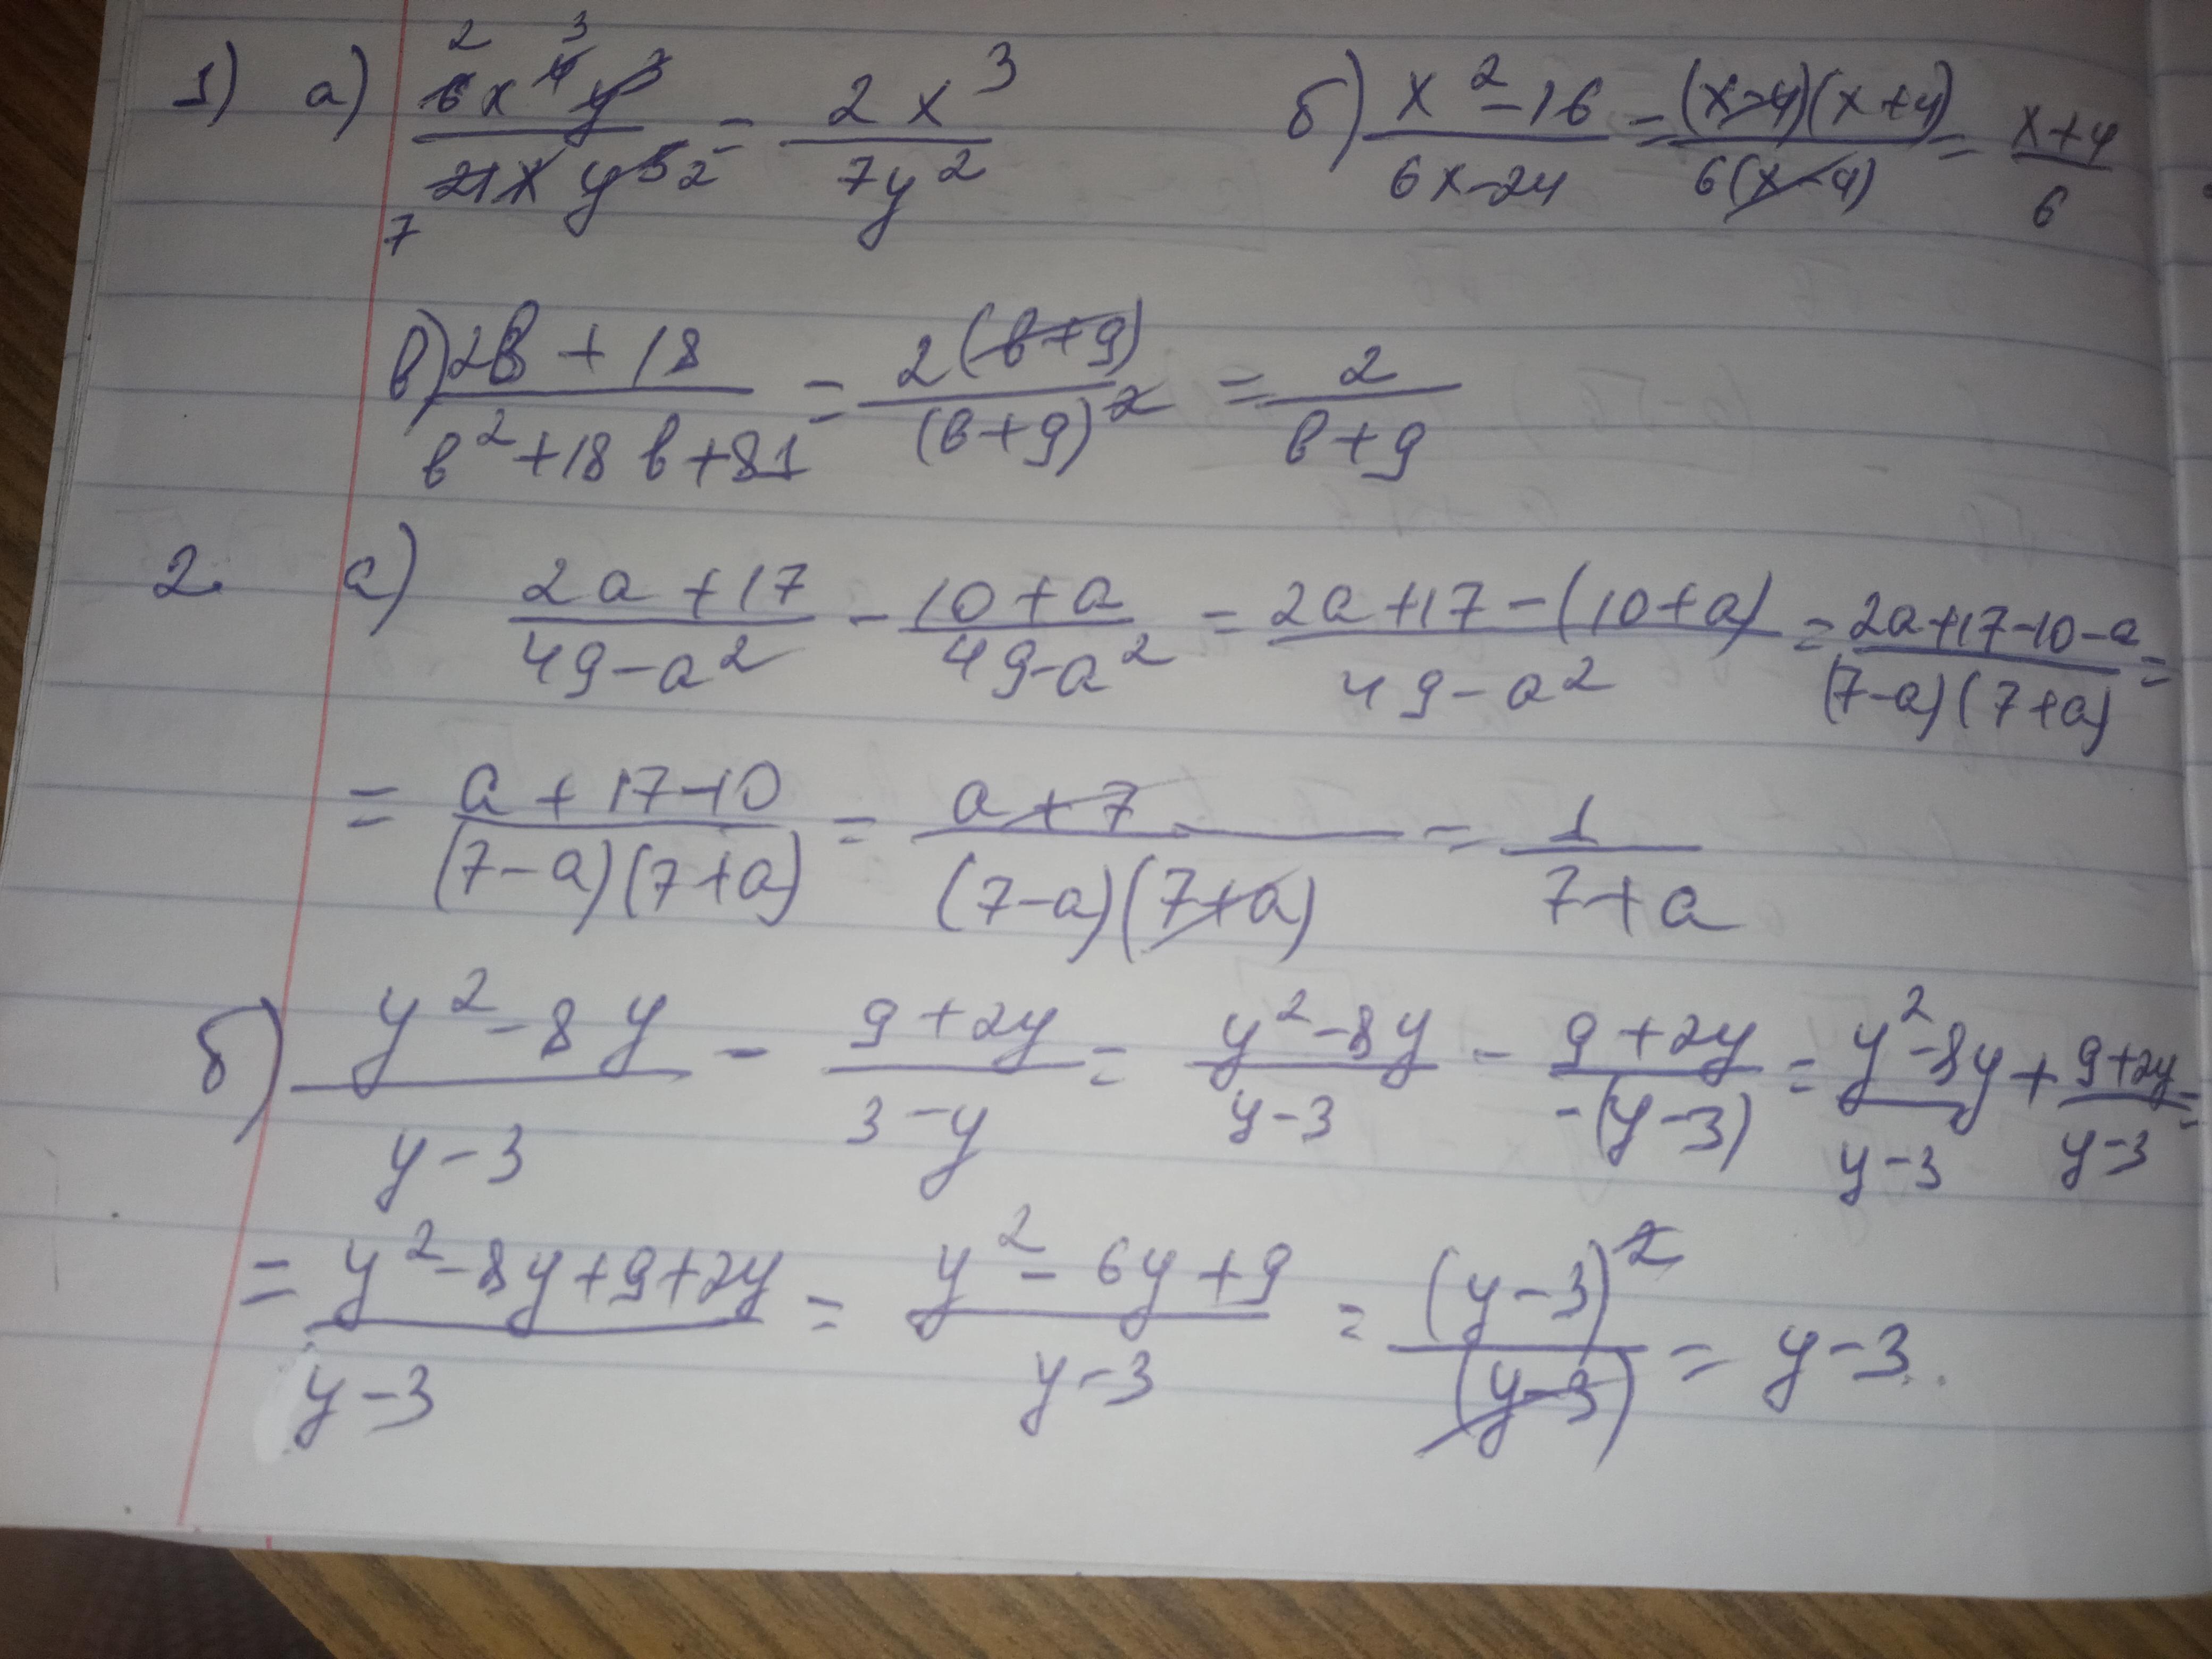 1) а) 6x⁴y³/21xy⁵ = 2x³/7y² б) x²-16/6x-24 = (x-4)(x+4)/6(x-4) = x+4/6
в) 2в+18/в²+18в+81 = 2(в+9)/(в+9)² = 2/в+9
2. а) 2a+17/49-a² - 10+a/49-a² = 2a+17-(10+a)/49-a² = 2a+17-10-a/(7-a)(7+a) =
= a+17-10/(7-a)(7+a) = a+7/(7-a)(7+a) = 1/7+a
б) y²-8y/y-3 - 9+2y/3-y = y²-8y/y-3 - 9+2y/-(y-3) = y²-8y/y-3 + 9+2y/y-3 =
= y²-8y+9+2y/y-3 = y²-6y+9/y-3 = (y-3)²/(y-3) = y-3.